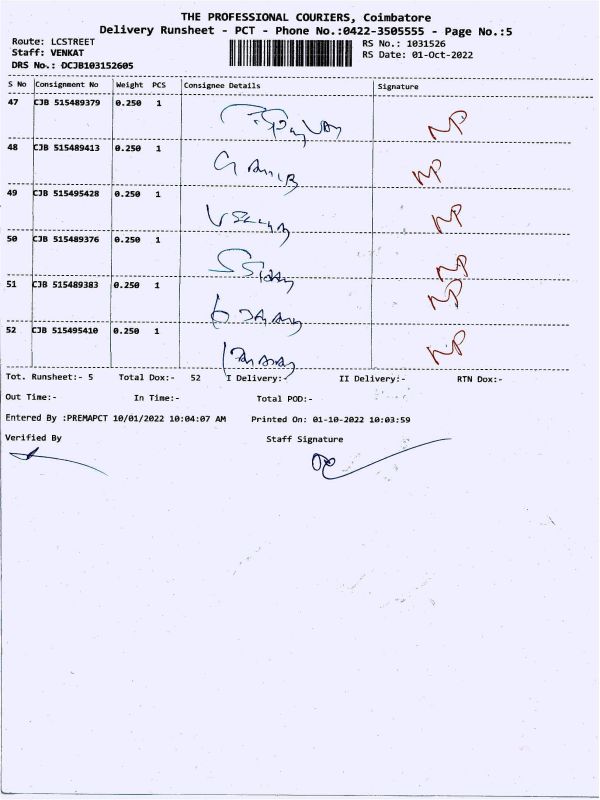 THE PROFESSIONAL COURIERS, Coimbatore
Delivery Runsheet - PCT - Phone No.:0422-3505555 - Page No.:5
Route: LCSTREET RS No.: 1031526
Staff: VENKAT RS Date: 01-Oct-2022
DRS No.: DCJB103152605
S No Consignment No Weight PCS Consignee Details Signature
47 CJB 515489379 0.250 1 NP
48 CJB 515489413 0.250 1 NP
49 CJB 515495428 0.250 1 NP
50 CJB 515489376 0.250 1 NP
51 CJB 515489383 0.250 1 NP
52 CJB 515495410 0.250 1 NP
Tot. Runsheet:- 5 Total Dox:- 52 I Delivery:- II Delivery:- RTN Dox:-
Out Time:- In Time:- Total POD:-
Entered By :PREMAPCT 10/01/2022 10:04:07 AM Printed On: 01-10-2022 10:03:59
Verified By Staff Signature